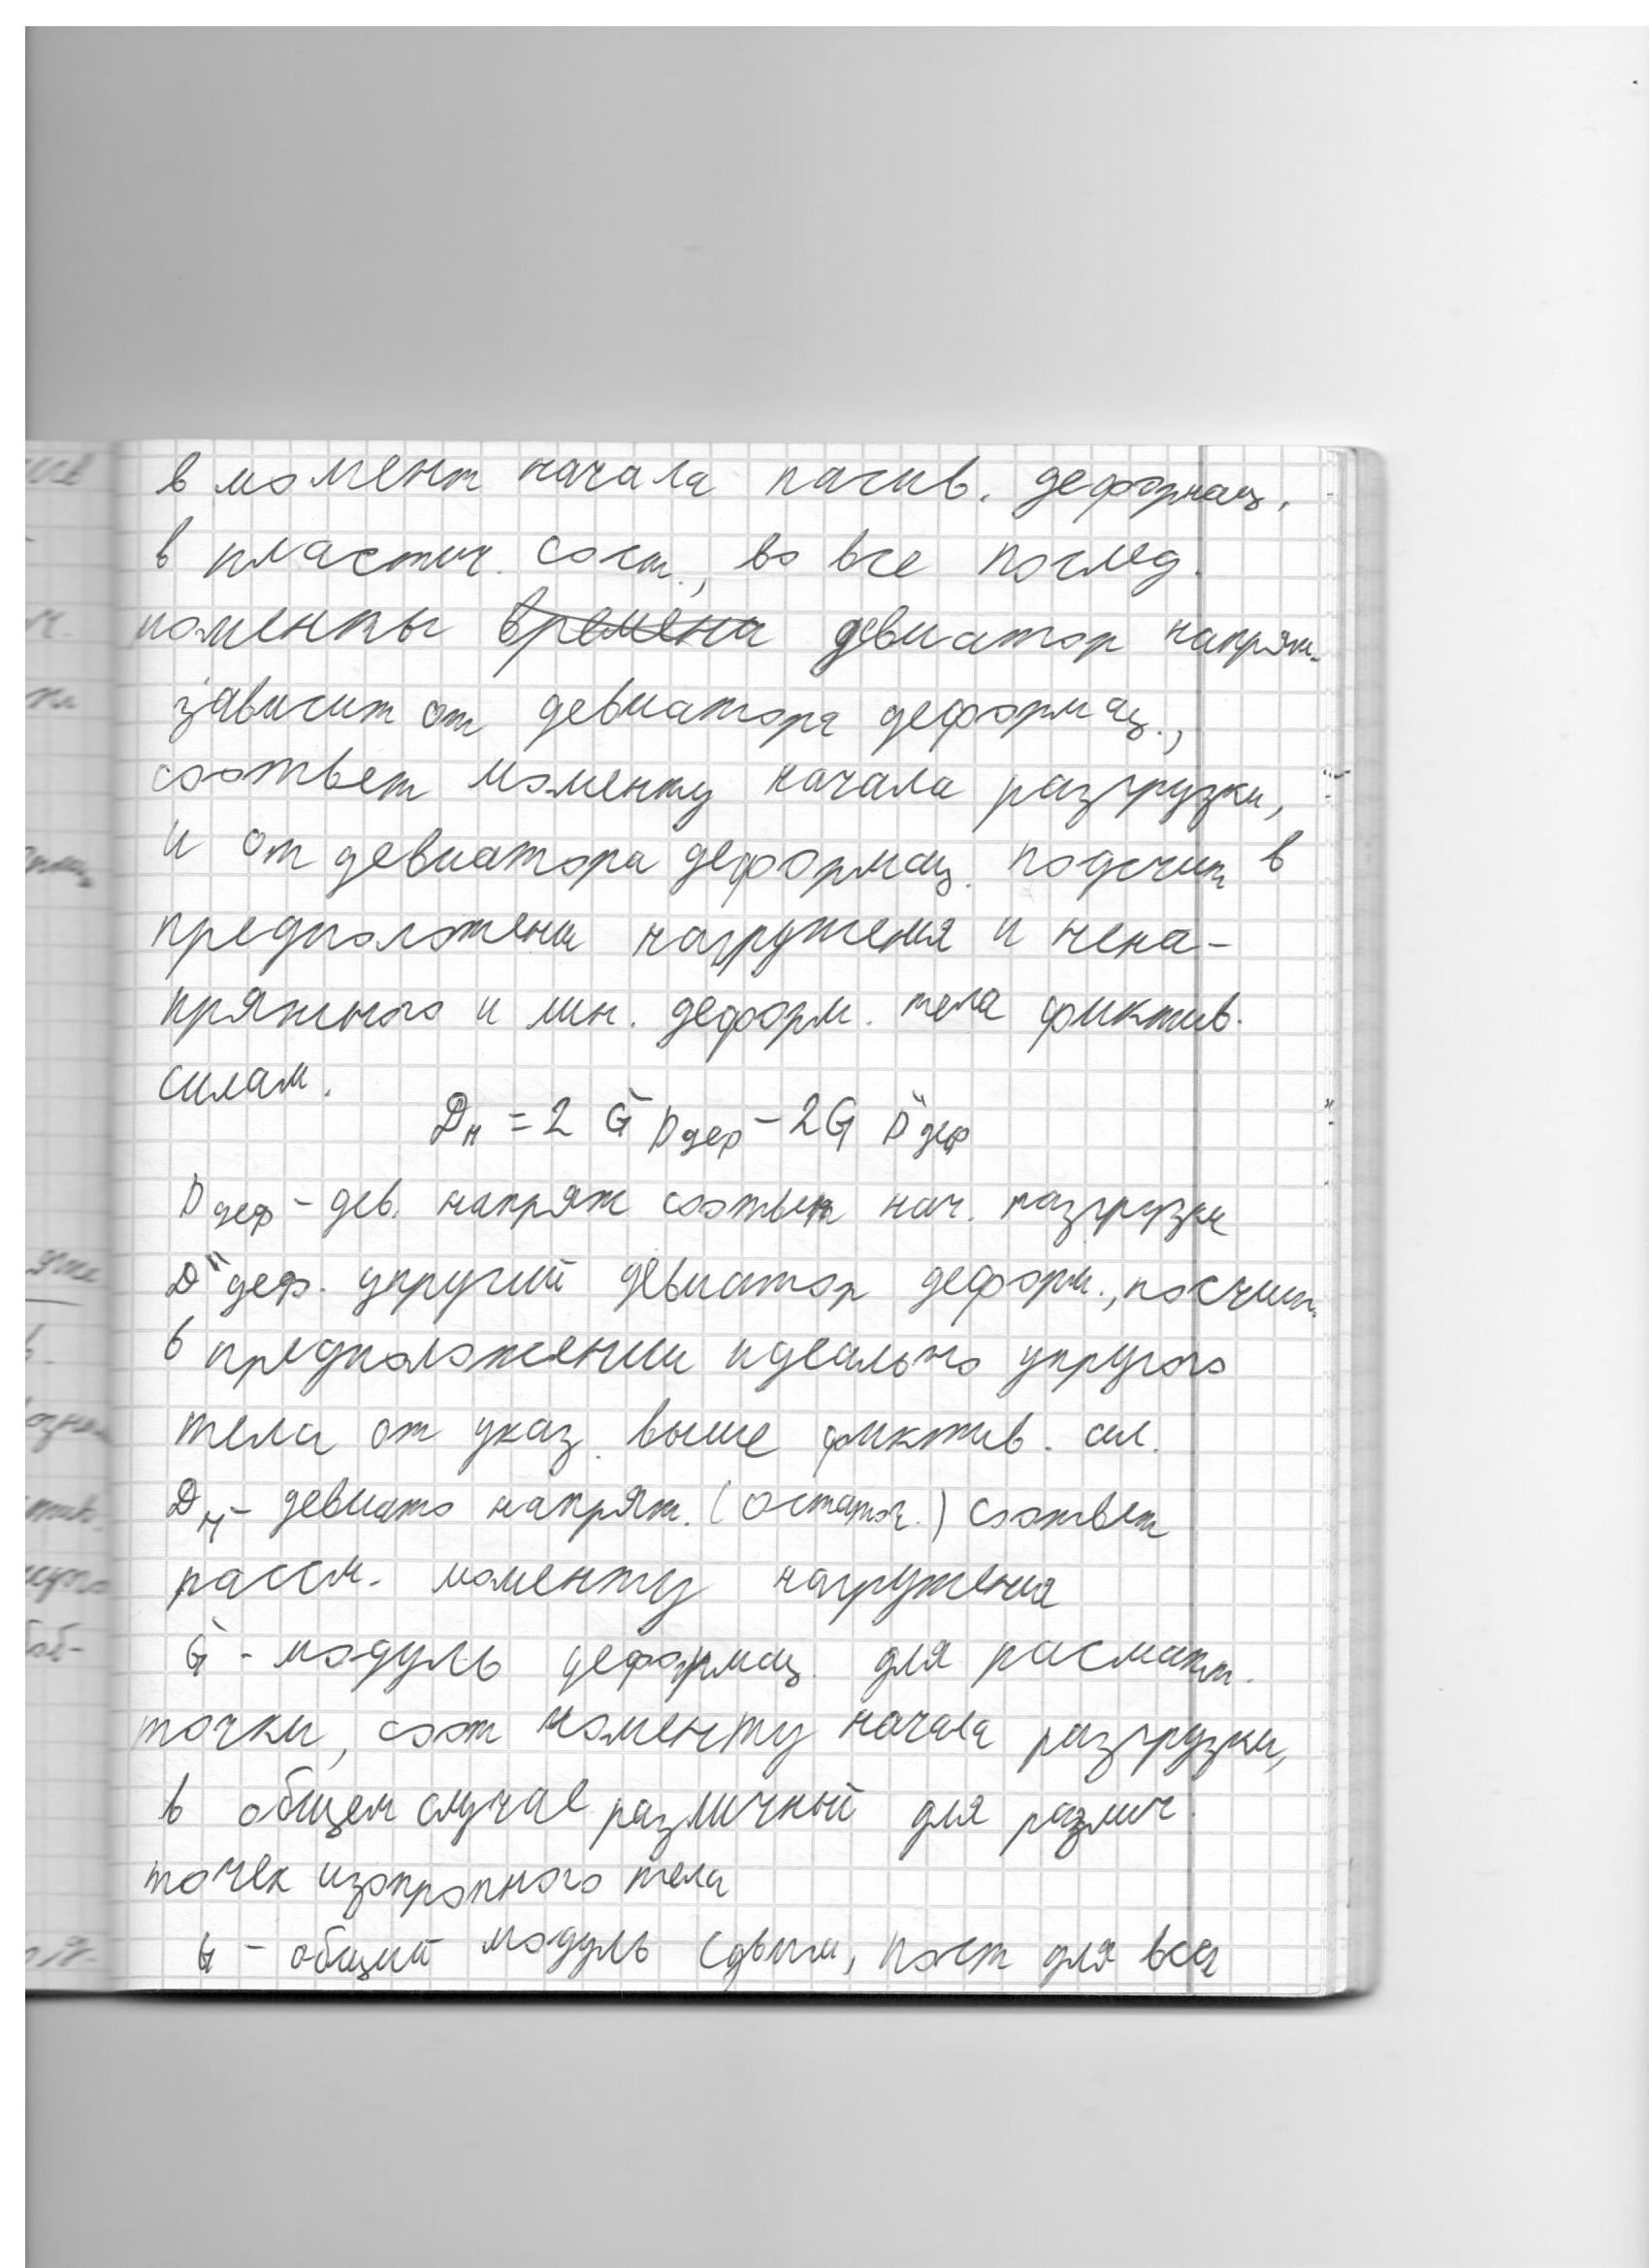 в момент начала пасив. деформац.
в пластич. сост., во все послед.
моменты времени девиатор напряж.
зависит от девиатора деформац.,
соответ моменту начала разгрузки,
и от девиатора деформац. подсчит в
предположени нагружения и нена-
пряжного и лин. деформ. тела фиктив.
силам.
Dн = 2 G̅ Dдеф - 2G D"деф
Dдеф - дев. напряж соответ нач. разгрузки
D"деф. упругий девиатор деформ., посчит.
в предположении идеально упругого
тела от указ. выше фиктив. сил.
Dн - девиато напряж. (остаточ.) соответ
рассм. моменту нагружения
G̅ - модуль деформац. для расматр.
точки, соот моменту начала разгрузки,
в общем случае различный для различ.
точек изотропного тела
G - общий модуль сдвига, пост для всех